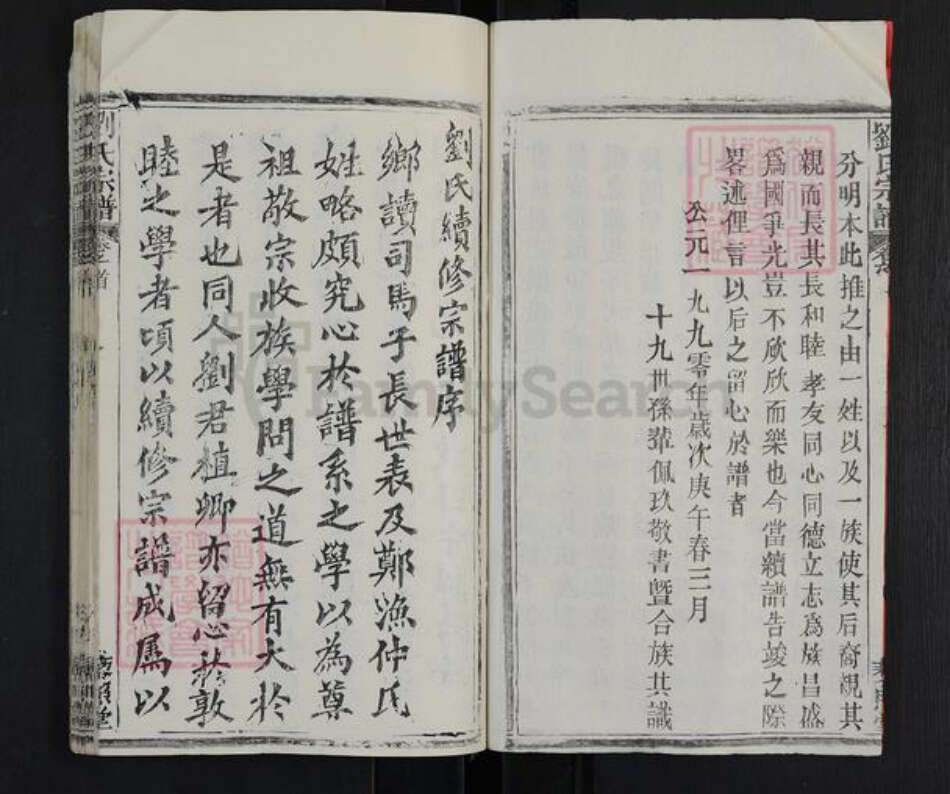 劉氏宗譜
分明本此推之由一姓以及一族使其后裔親其
親而長其長和睦孝友同心同德立志為族昌盛
爲國爭光豈不欣欣而樂也今當續譜告竣之際
畧述俚言以后之留心於譜者
公元一九九零年歲次庚午春三月
十九世孫輩佩玖敬書暨合族共識
劉氏續修宗譜序
鄉讀司馬子長世表及鄭漁仲氏
姓略頗究心於譜系之學以為尊
祖敬宗收族學問之道無有大於
是者也同人劉君植卿亦留心於敦
睦之學者頃以續修宗譜成屬以
劉氏宗譜
卷之首
藜照堂
FamilySearch